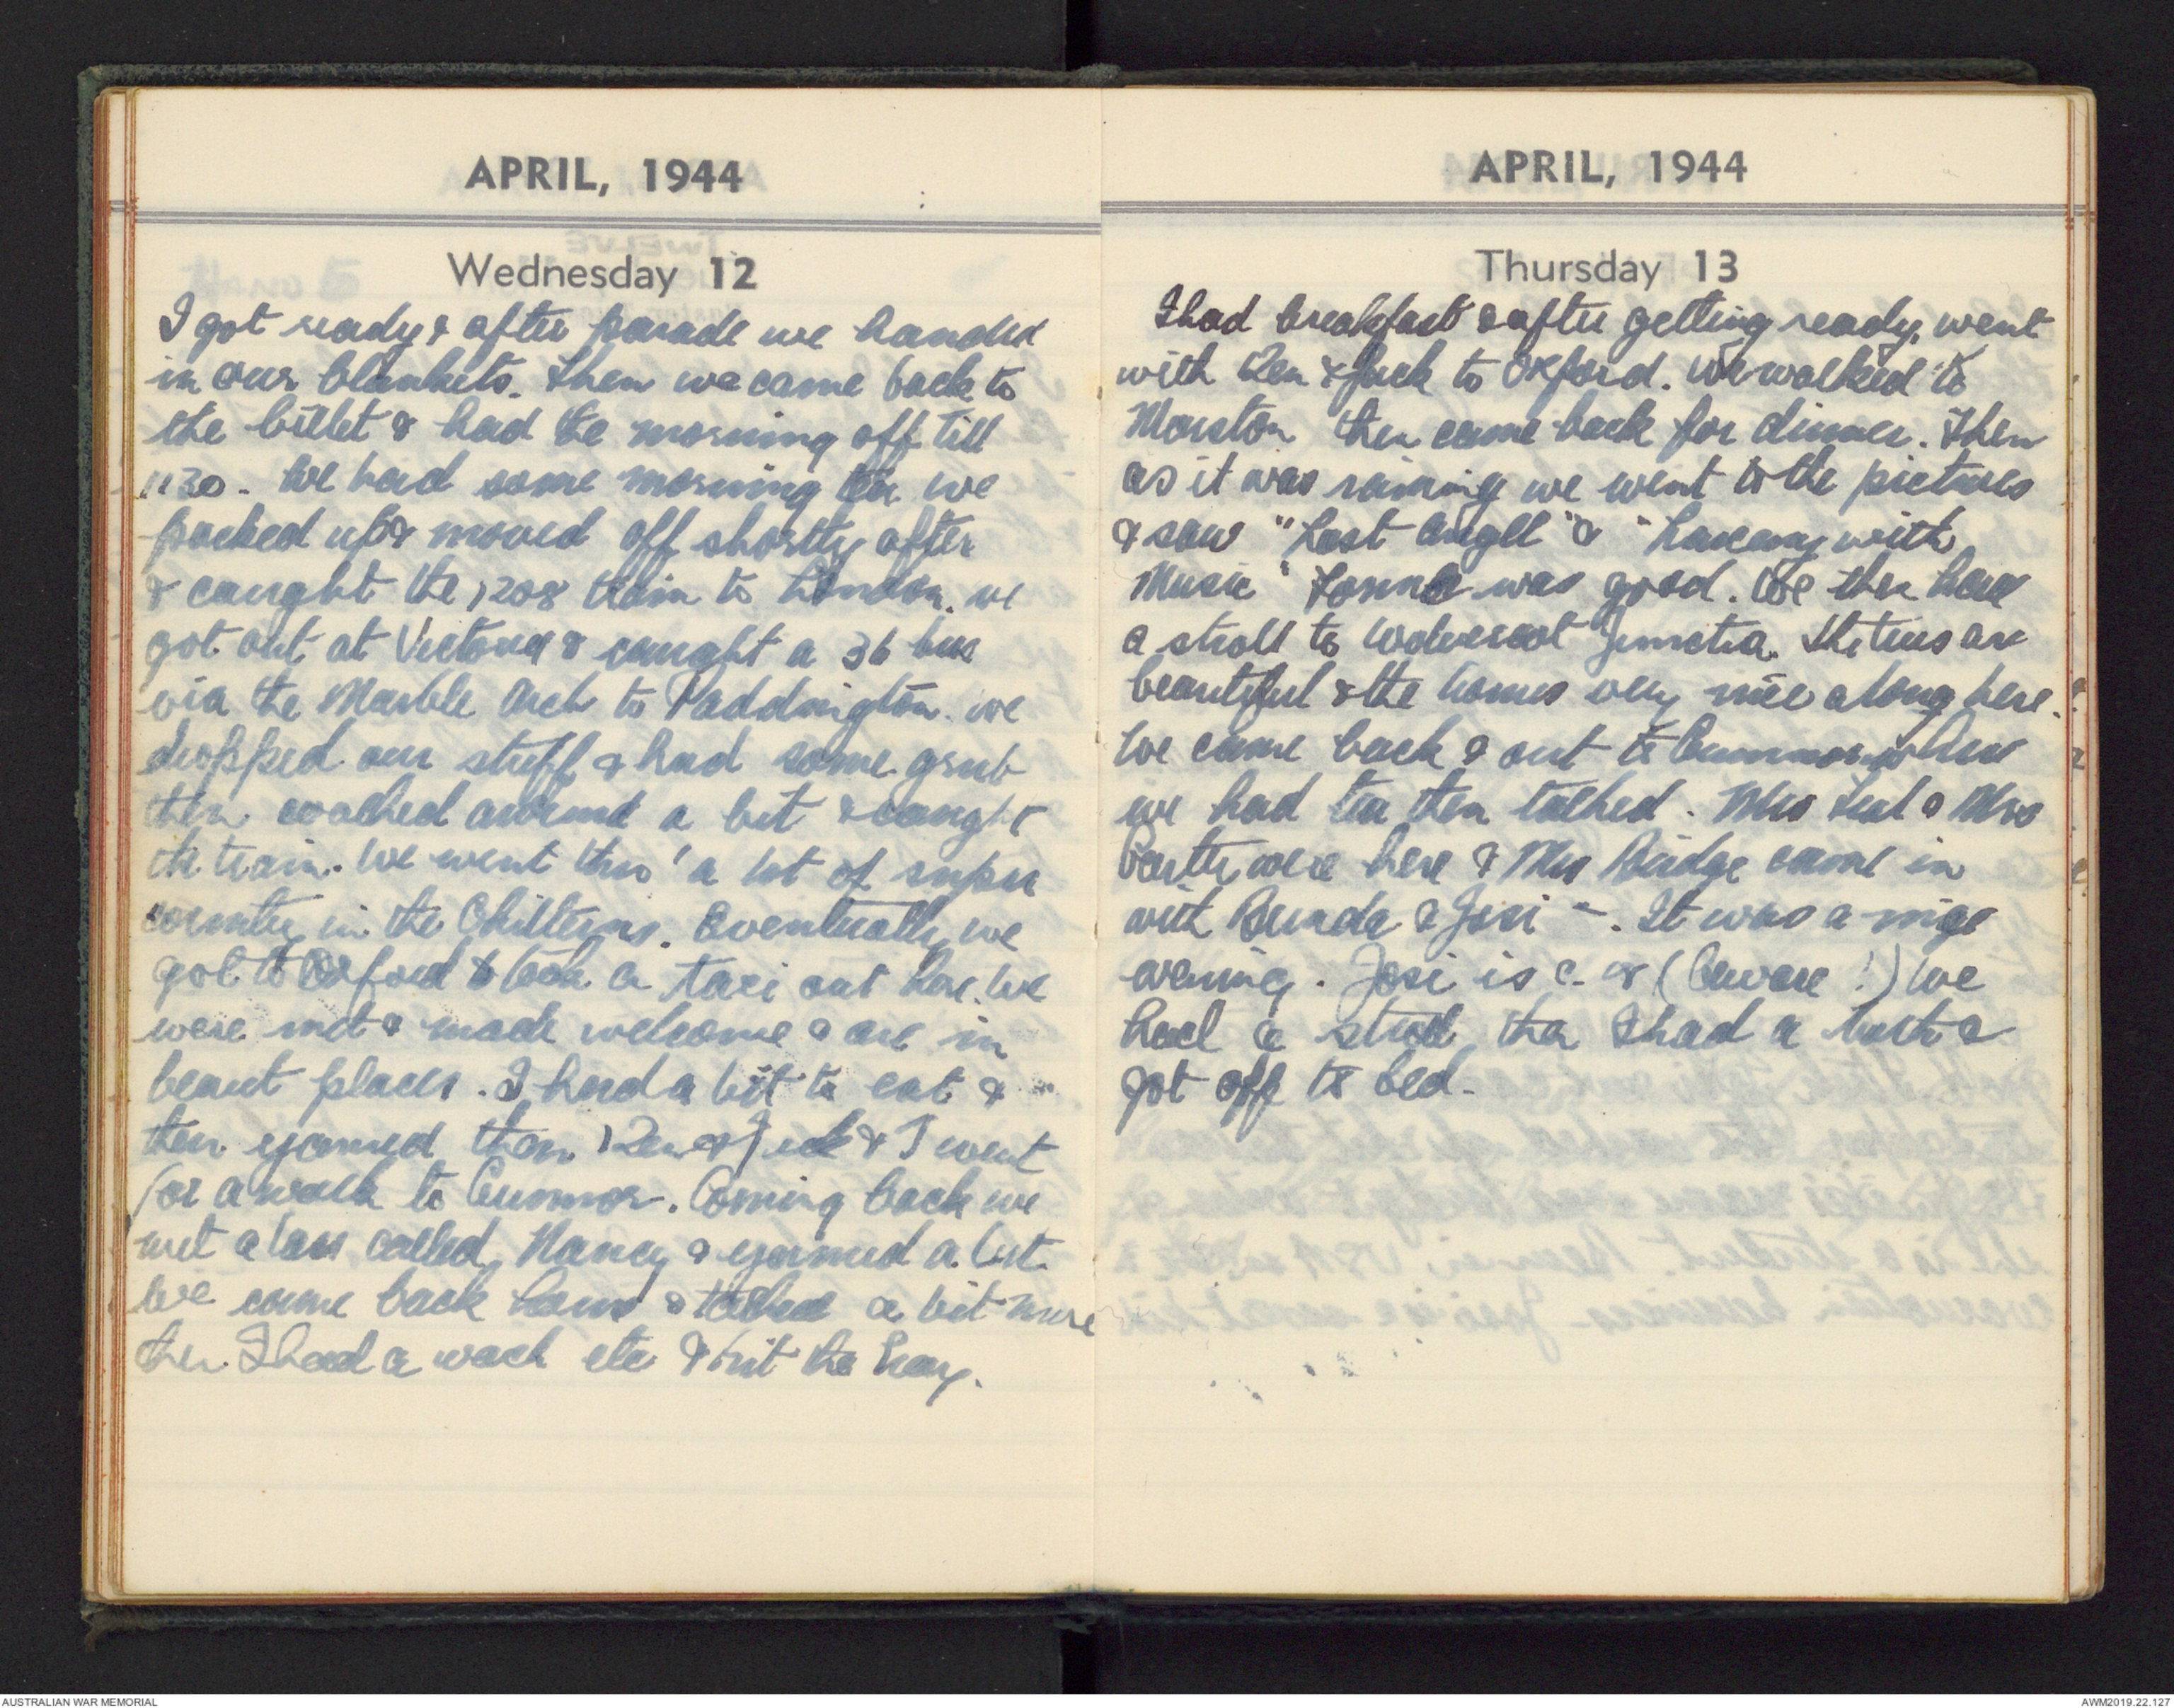 APRIL, 1944
Wednesday 12
I got ready & after parade we handed
in our blankets. Then we came back to
the billet & had the morning off till
1130. We had some morning tea we
packed up & moved off shortly after
& caught the 1208 train to London. we
got out at Victoria & caught a 36 bus
via the Marble Arch to Paddington. we
dropped our stuff & had some grub
then walked around a bit & caught
the train. We went thro' a lot of super
country in the Chilterns. Eventually we
got to Oxford & took a taxi out here. We
were met & made welcome & are in
beaut places. I had a bit to eat &
then yarned then Ken & Jack & I went
for a walk to Cumnor. Coming back we
met a lass called Nancy & yarned a bit.
We came back home & talked a bit more
then I had a wash etc & hit the hay.
APRIL, 1944
Thursday 13
I had breakfast & after getting ready, went
with Ken & Jack to Oxford. We walked to
Marston then came back for dinner. Then
as it was raining we went to the pictures
& saw "Lost Angel" & " with
Music" Former was good. We then had
a stroll to Wolvercot Junction. The trees are
beautiful & the homes very nice along here.
We came back & out to Cumnor where
we had tea then talked. Mrs & Mrs
were here & Mrs Bridge came in
with & Josi -. It was a nice
evening. Josi is c. (Beware!) We
had a stroll, then I had a bath &
got off to bed.
AUSTRALIAN WAR MEMORIAL
AWM2019.22.127